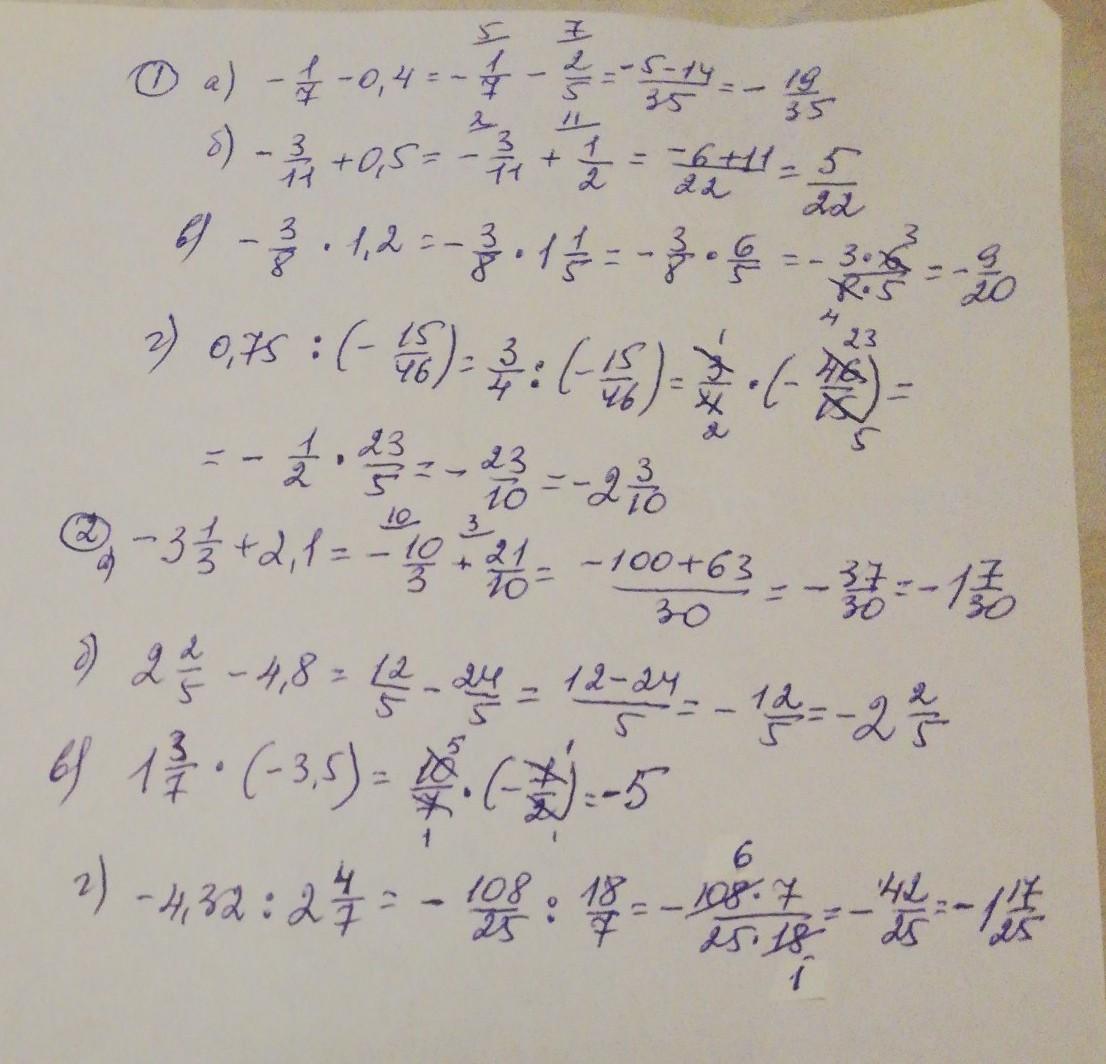 ① а) -1/7 - 0,4 = -1/7 (5) - 2/5 (7) = (-5-14)/35 = -19/35
б) -3/11 + 0,5 = -3/11 (2) + 1/2 (11) = (-6+11)/22 = 5/22
в) -3/8 · 1,2 = -3/8 · 1 1/5 = -3/8 · 6/5 = -(3·6 3)/(8·5 4) = -9/20
г) 0,75 : (-15/46) = 3/4 : (-15/46) = 3/4 (1/2) · (-46/15) (23/5) =
= -1/2 · 23/5 = -23/10 = -2 3/10
② а) -3 1/3 + 2,1 = -10/3 (10) + 21/10 (3) = (-100+63)/30 = -37/30 = -1 7/30
б) 2 2/5 - 4,8 = 12/5 - 24/5 = (12-24)/5 = -12/5 = -2 2/5
в) 1 3/7 · (-3,5) = 10/7 (5/1) · (-7/2) (1/1) = -5
г) -4,32 : 2 4/7 = -108/25 : 18/7 = -(108·7 6)/(25·18 1) = -42/25 = -1 17/25